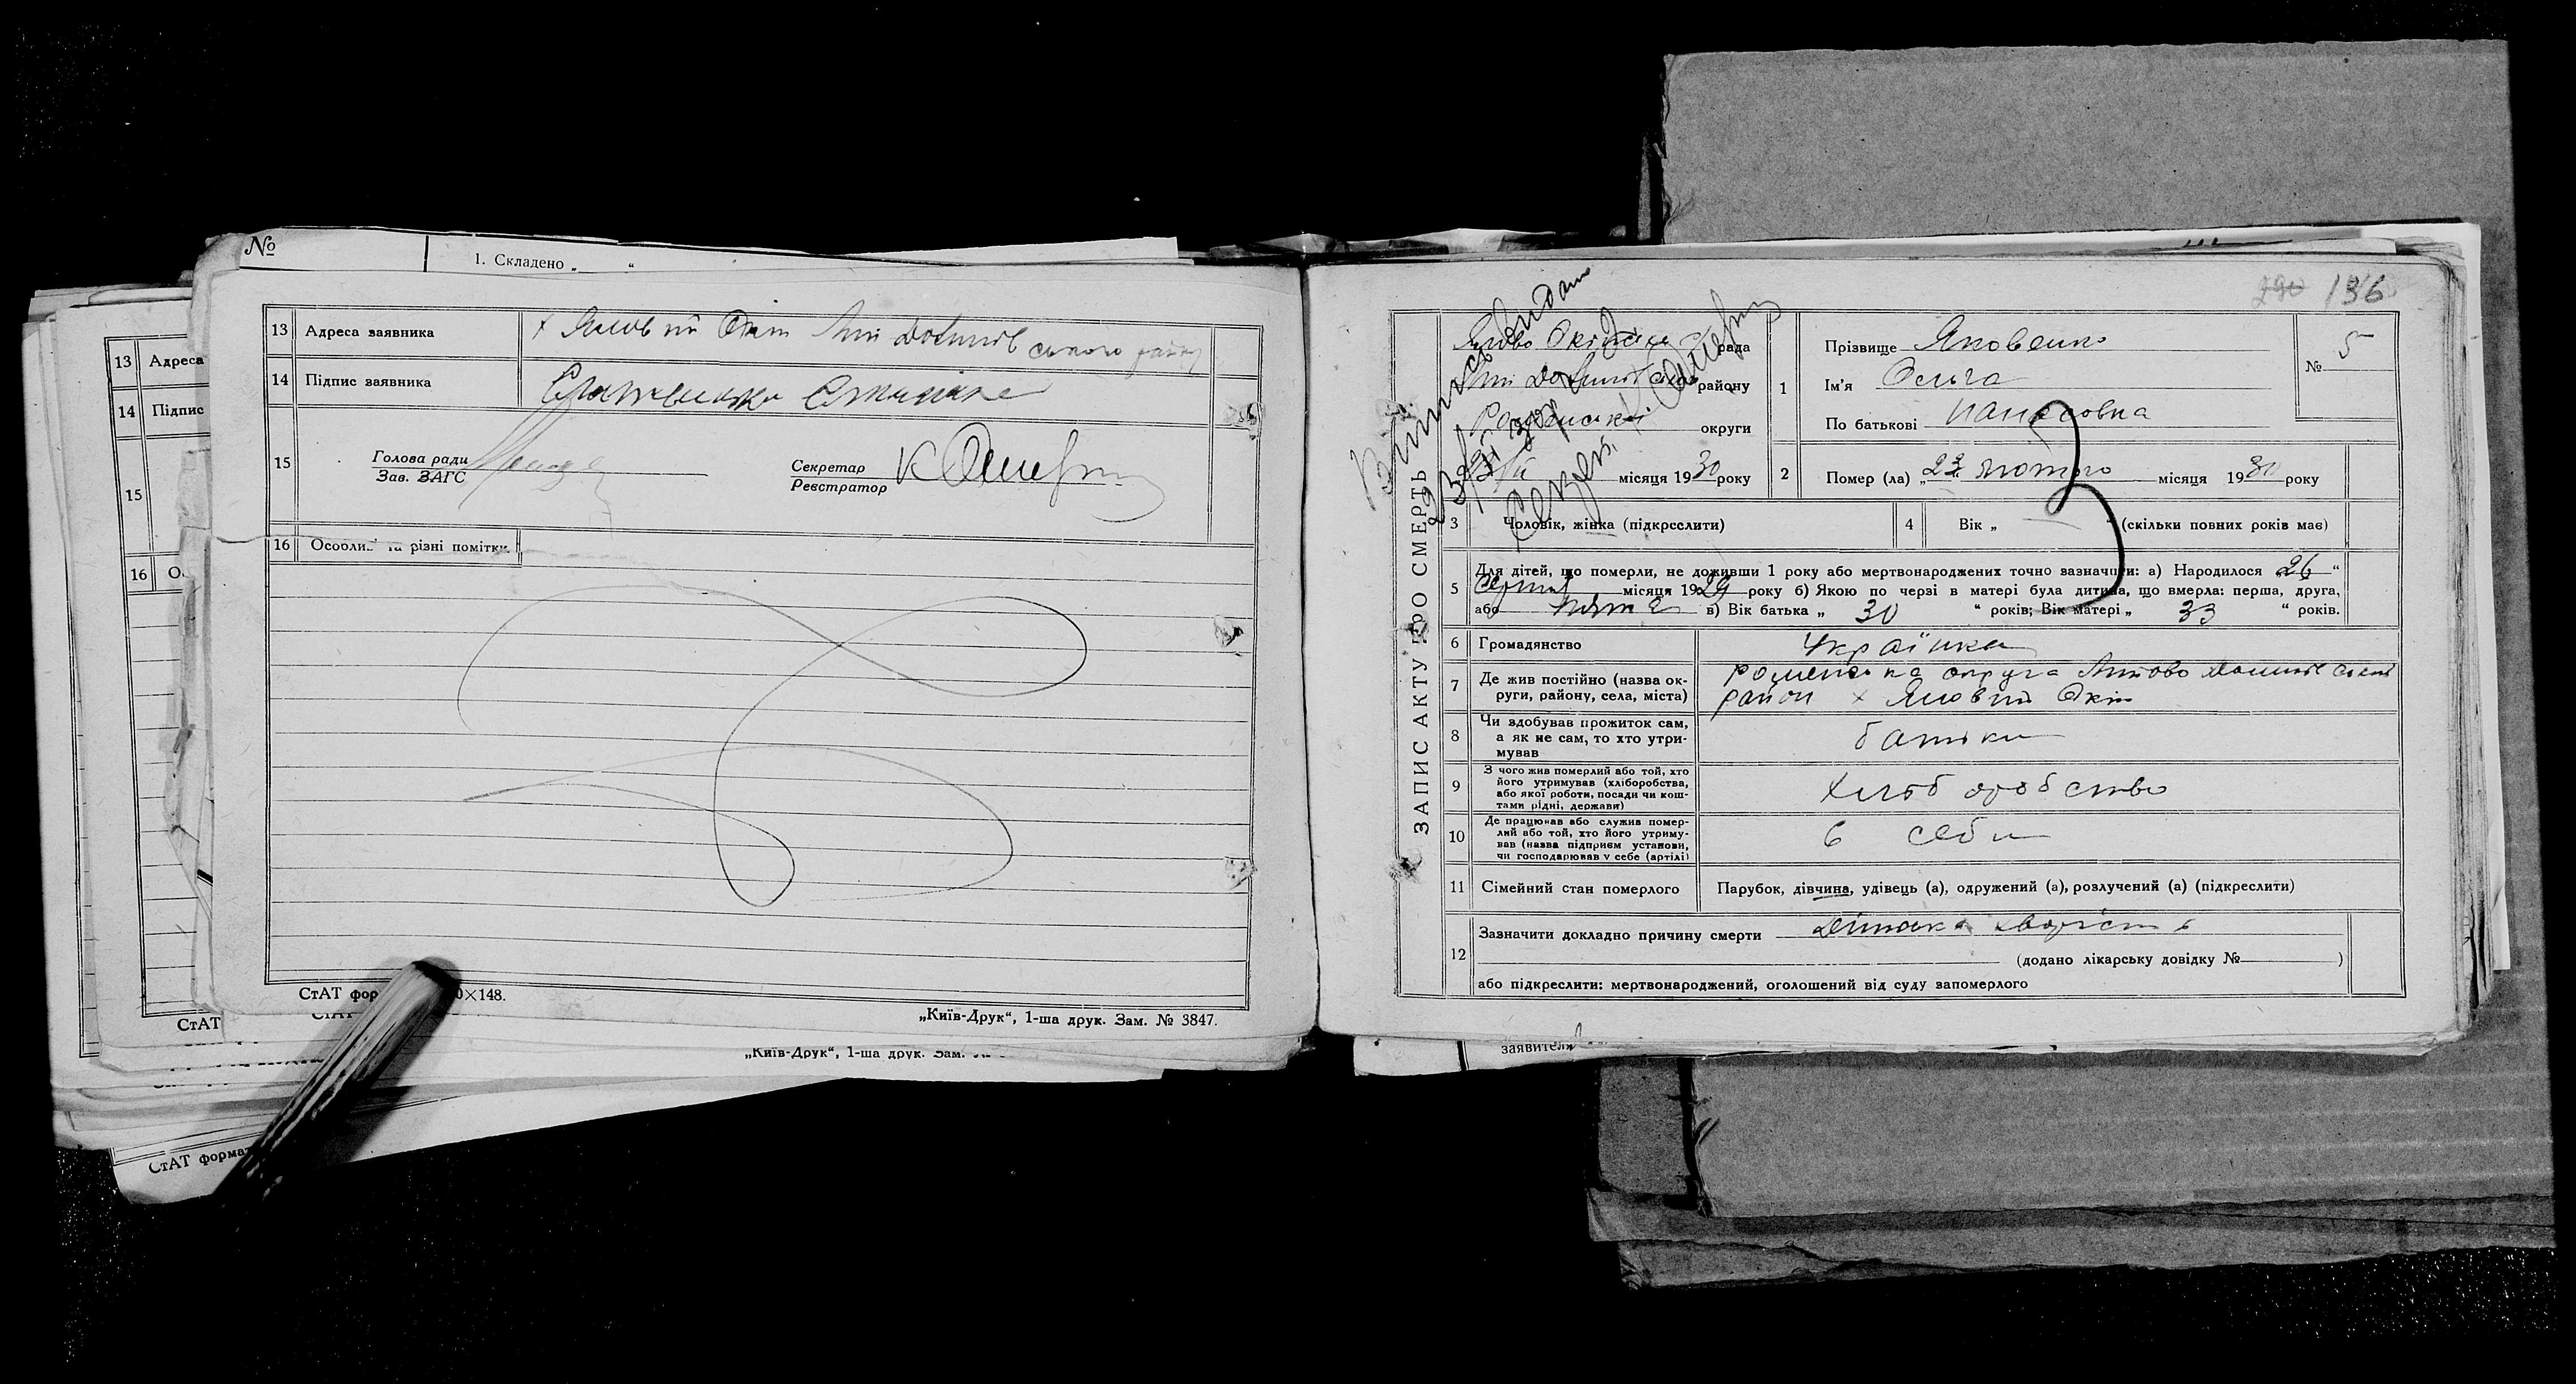 №
1. Складено „ “
13 Адреса заявника х Яловий Окіп Липоводолинсь
ського району
14 Підпис заявника
15 Голова ради
Зав. ЗАГС
Секретар
Реєстратор
16 Особли та різні помітки
СтАТ фор 0×148.
„Київ-Друк“, 1-ша друк. Зам. № 3847.
13 Адреса
14 Підпис
15
16 О
СтАТ
„Київ-Друк“, 1-ша друк. Зам.
СтАТ формат
290 136
ЗАПИС АКТУ ПРО СМЕРТЬ
Витись видан
рада
району
Роменської округи
місяця 1930 року
1 Прізвище Яковенко
Ім'я Ольга
По батькові Панасовна
№ 5
2 Помер (ла) „23“ лютого місяця 1930 року
3 Чоловік, жінка (підкреслити)
4 Вік „ — “ (скільки повних років має)
5 Для дітей, що померли, не доживши 1 року або мертвонароджених точно зазначити: а) Народилося „26“
Серпня місяця 1929 року б) Якою по черзі в матері була дитина, що вмерла: перша, друга,
або пята в) Вік батька „ 30 “ років; Вік матері „ 33 “ років.
6 Громадянство Українка
7 Де жив постійно (назва ок-
руги, району, села, міста)
роменська округа Липово Долинський
район х Яловий Окіп
8 Чи здобував прожиток сам,
а як не сам, то хто утри-
мував
батьки
9 З чого жив померлий або той, хто
його утримував (хліборобства,
або якої роботи, посади чи кош-
тами рідні, держави)
хліборобство
10 Де працював або служив помер-
лий або той, хто його утриму-
вав (назва підприєм установи,
чи господарював у себе (артілі)
в себе
11 Сімейний стан померлого Парубок, дівчина, удівець (а), одружений (а), розлучений (а) (підкреслити)
12 Зазначити докладно причину смерти Дітська хворість
(додано лікарську довідку № )
або підкреслити: мертвонароджений, оголошений від суду запомерлого
заявителя